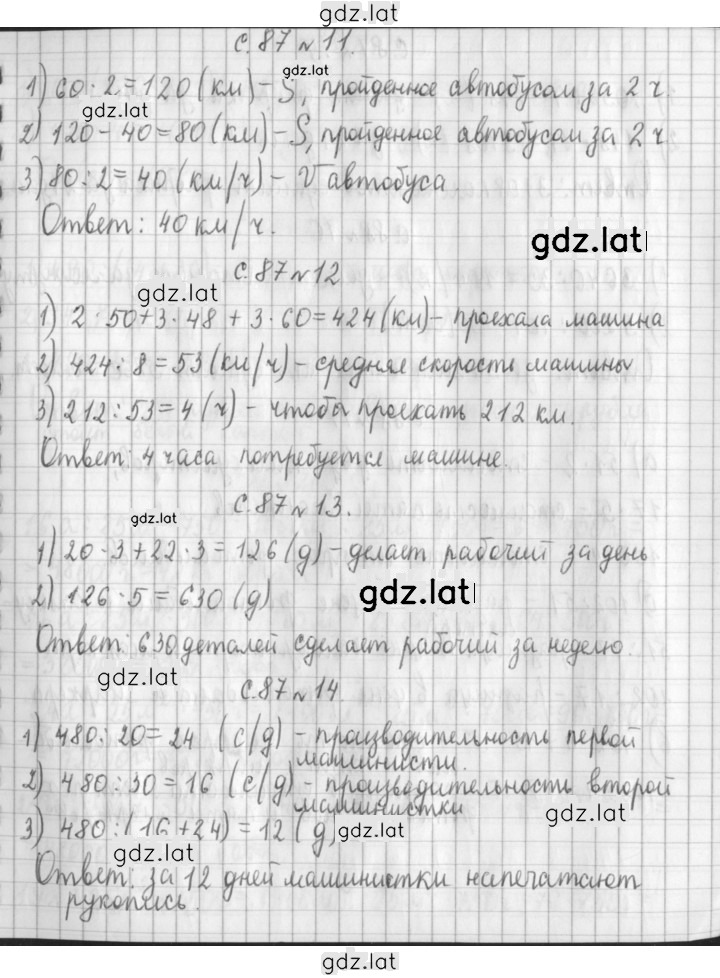 gdz.lat
с. 87 № 11.
gdz.lat
1) 60 · 2 = 120 (км) – S, пройденное автобусом за 2 ч.
gdz.lat
2) 120 – 40 = 80 (км) – S, пройденное автобусом за 2 ч
3) 80 : 2 = 40 (км/ч) – V автобуса
Ответ: 40 км/ч.
gdz.lat
с. 87 № 12
gdz.lat
1) 2 · 50 + 3 · 48 + 3 · 60 = 424 (км) – проехала машина
2) 424 : 8 = 53 (км/ч) – средняя скорость машины
3) 212 : 53 = 4 (ч) – чтобы проехать 212 км.
Ответ: 4 часа потребуется машине.
с. 87 № 13.
gdz.lat
1) 20 · 3 + 22 · 3 = 126 (д) – делает рабочий за день
2) 126 · 5 = 630 (д)
gdz.lat
Ответ: 630 деталей сделает рабочий за неделю.
gdz.lat
с. 87 № 14
1) 480 : 20 = 24 (с/д) – производительность первой
машинисти.
2) 480 : 30 = 16 (с/д) – производительность второй
машинистки
gdz.lat
3) 480 : (16 + 24) = 12 (д)
gdz.lat
gdz.lat
Ответ: за 12 дней машинистки напечатают
рукопись.
gdz.lat